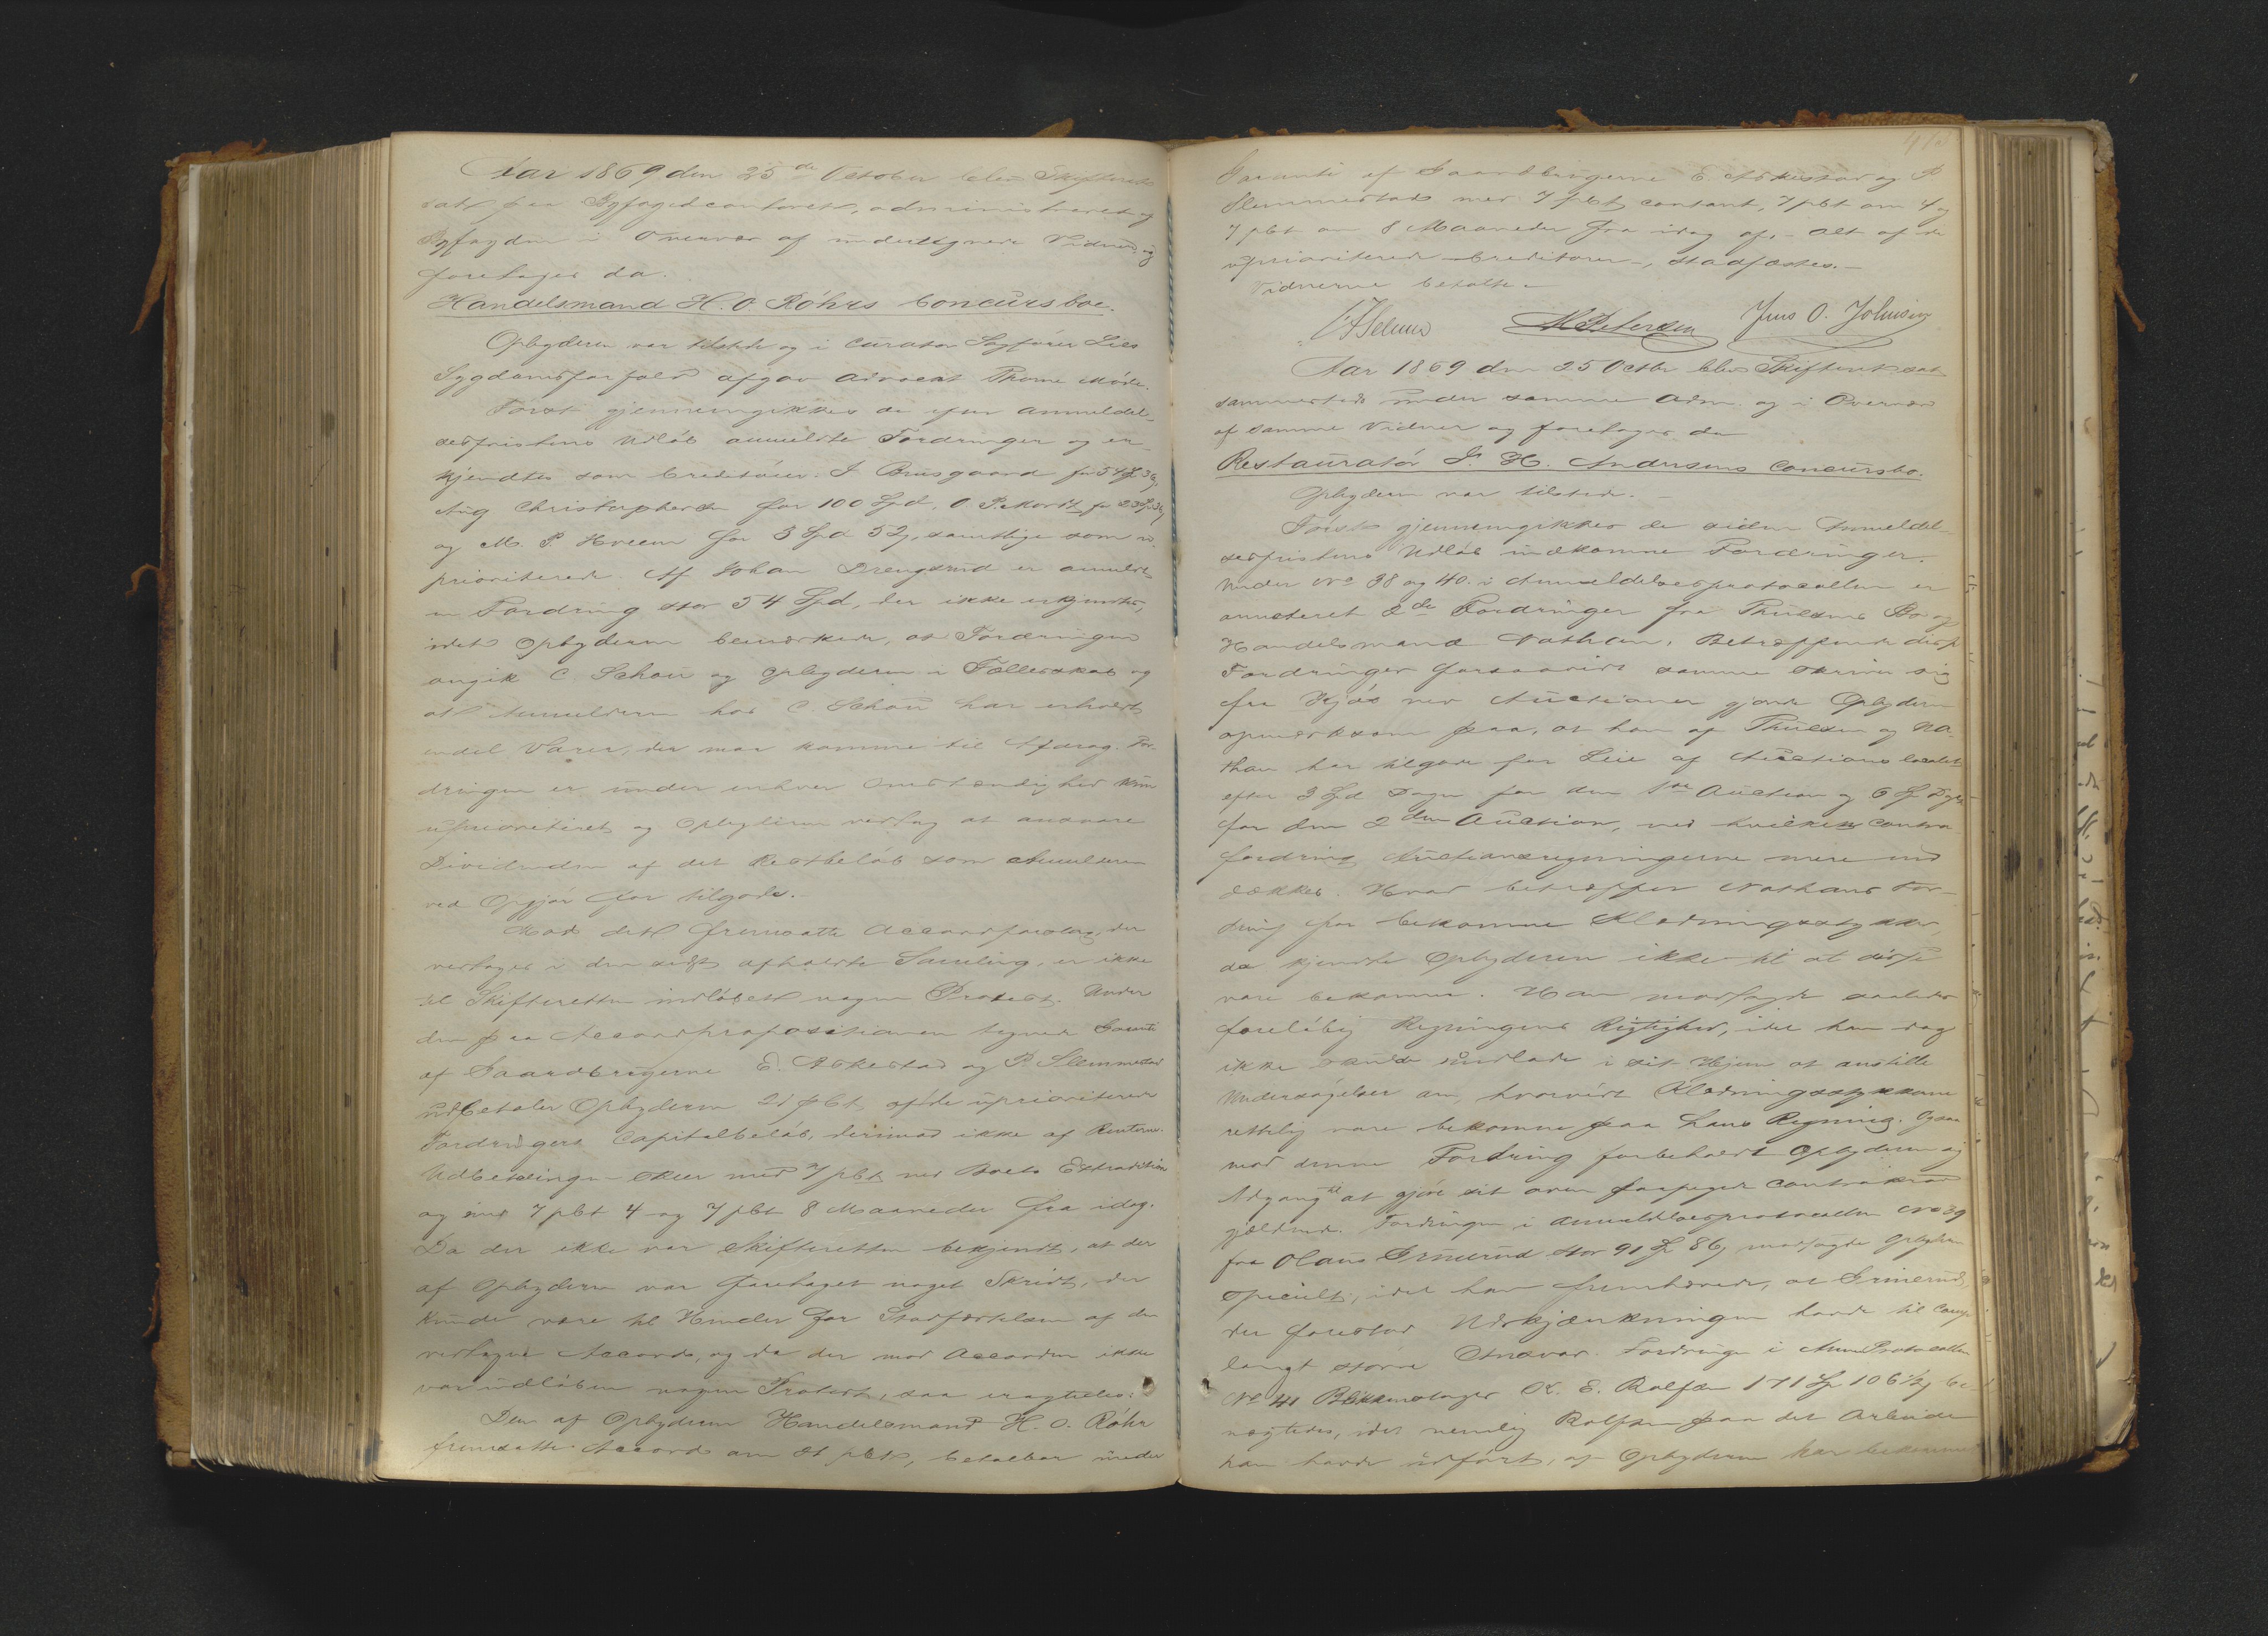 Aar 1869 den 25de October blev Skifteret
sat paa Byfogedcontoret, administreret af
Byfogden i Overvær af undertegnede Vidner og
foretages da.
Handelsmand H. O. Röhrs Concursboe.
Opbyderen var tilstede og i Curator Sagförer Lies
Sygdomsforfald afgav Advocat Thome Möde.
Först gjennemgikkes de efter Anmeldel-
sesfristens Udløb anmeldte Fordringer og er-
kjendtes som Creditorer: I Brusgaard for 54 Sp 36
Aug Christophersen for 100 Spd. O P. Mordt for
og M. P. Hveem for 3 Spd 52, samtlige som u-
prioriterede. Af Johan Drengsrud er anmeldt
en Fordring stor 54 Spd, der ikke erkjendtes,
idet Opbyderen bemærkede, at Fordringen
angik C. Schou og Opbyderen i Fællesskab og
at Anmelderen hos C. Schou har erholdt
endel Varer, der maa komme til Afdrag. For-
dringen er under enhver Omstændighed kun
uprioriteret og Opbyderen vedtog at ansvare
Dividenden af det Restbelöb som Anmelderen
ved Opgjör faar tilgode.
Mod det fremsatte Accordforslag, der
vedtoges i den sidst afholdte Samling, er ikke
til Skifteretten indlöbet nogen Protest. Under
den paa Accordpropositionen tegnede Garanti
af Gaardbrugerne E. Askestad og P. Slemmestad
udbetaler Opbyderen 21 pCt af de uprioriterede
Fordringers Capitalbelöb, derimod ikke af Renterne.
Udbetalingen skeer med 7 pCt ved Boets Extradition
og med 7 pCt 4 og 7 pCt 8 Maaneder fra idag.
Da der ikke var Skifteretten bekjendt, at der
af Opbyderen var foretaget noget Skridt, der
kunde være til Hinder for Stadfæstelsen af den
vedtagne Accord, og da der mod Accorden ikke
var indlöben nogen Protest, saa eragtedes:
Den af Opbyderen Handelsmand H. O. Röhr
fremsatte Accord om 21 pCt, betalbar under
Garanti af Gaardbrugerne E. Askestad og P
Slemmestad med 7 pCt contant, 7 pCt om 4 og
7 pCt om 8 Maaneder fra idag af, - alt af de
uprioriterede Creditorer -, stadfæstes.-
Vidnerne betalte-
M Petersen Jens O. Johnsen
Aar 1869 den 25 Octbr blev Skifteret sat
sammesteds under samme Adm. og i Overvær
af samme Vidner og foretoges da
Restauratör J. H. Andersens Concursbo.
Opbyderen var tilstede.-
Först gjennemgikkes de siden Anmeldel-
sesfristens Udlöb indkomne Fordringer.
Under No 38 og 40 i Anmeldelsesprotocollen er
annoteret 2de Fordringer fra Thulsens Bo og
Handelsmand Nathan. Betræffende disse
Fordringer forsaavidt samme skriver sig
fra Kjøb ved Auctioner gjorde Opbyderen
opmærksom paa, at han af Thulsen og Na-
than har tilgode for Leie af Auctionslocalet
efter 3 Spd Dagen for den 1ste Auction og 6 Sp Dagen
for den 2den Auction, ved hvilken Contra-
fordring Auctionsregningerne mere end
dækkes. Hvad betræffer Nathans For-
dring for bekomne Klædningsstykker,
da kjendte Opbyderen ikke til at disse
vare bekomne. Han modsagde saaledes
foreløbig Regningens Rigtighed, idet han dog
ikke vilde undlade i sit Hjem at anstille
Undersögelser om, hvorvidt Klædningsstykkerne
rettelig vare bekomne paa hans Regning. Ogsaa
mod denne Fordring forbeholdt Opbyderen sig
Adgang til at gjöre sit oven paapegede Contrakrav
gjældende. Fordringen i Anmeldelsesprotocollen No 39
fra Olaus Grinerud stor 91 Sp 86 modsagde Opbyderen
specielt, idet han fremhævede, at Grinerud,
der forestod Udskjænkningen havde til
langt större Ansvar. Fordringen i AnmProtocollen
No 41 Blikkenslager E. Rolfsen 171 Sp 106 be-
nægtedes, idet nemlig Rolfsen paa det Arbeide
han havde udfört, af Opbyderen har bekommet